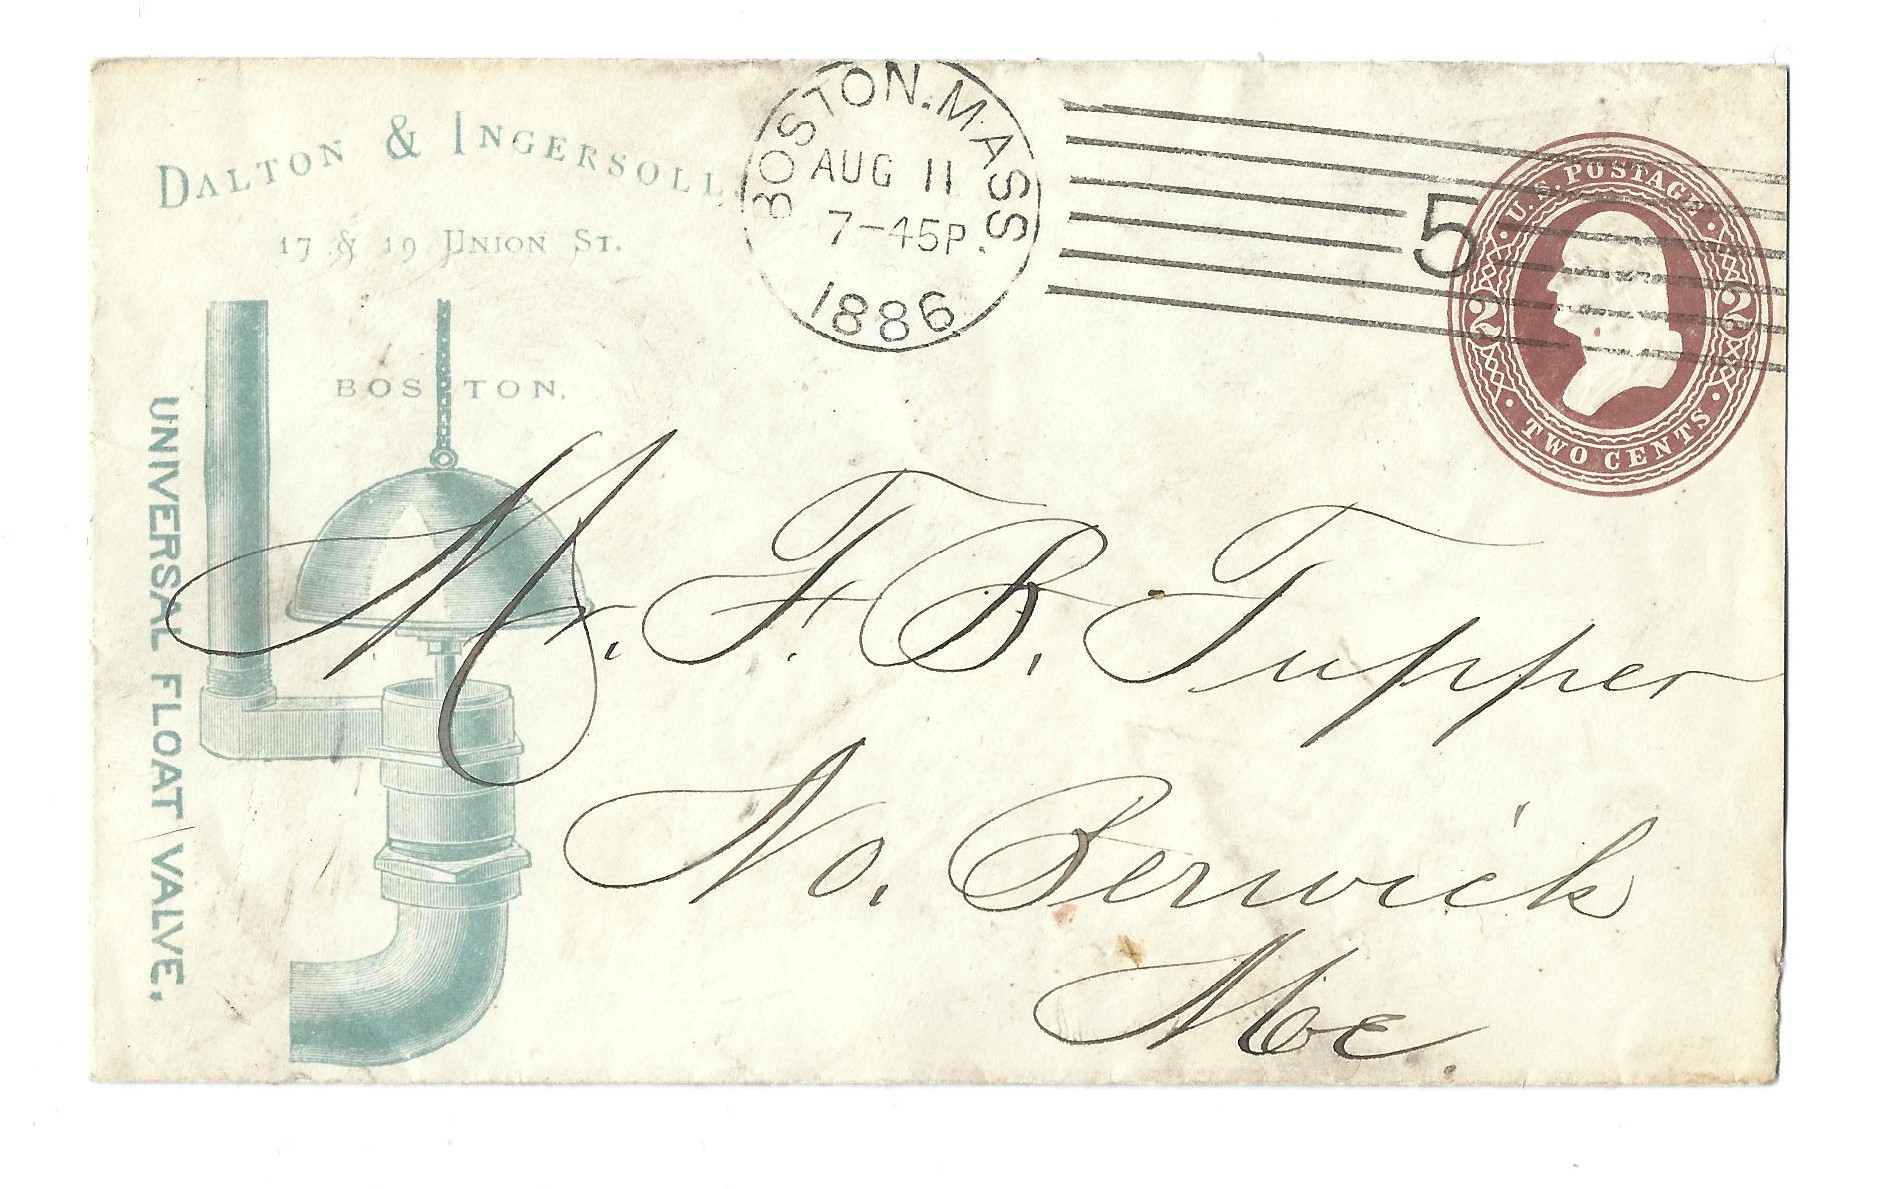 DALTON & INGERSOLL.
17 & 19 UNION ST.
BOSTON.
UNIVERSAL FLOAT VALVE.
BOSTON. MASS
AUG 11
7-45P.
1886
5
U.S. POSTAGE
2 2
TWO CENTS
Mr. F. B. Tupper
No. Berwick
Me.